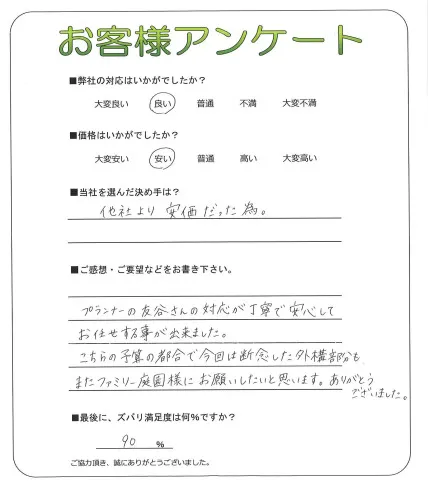 お客様アンケート
■弊社の対応はいかがでしたか？
大変良い 良い 普通 不満 大変不満
■価格はいかがでしたか？
大変安い 安い 普通 高い 大変高い
■当社を選んだ決め手は？
他社より安価だった為。
■ご感想・ご要望などをお書き下さい。
プランナーの友谷さんの対応が丁寧で安心して
お任せする事が出来ました。
こちらの予算の都合で今回は断念した外構部分も
またファミリー庭園様にお願いしたいと思います。ありがとう
ございました。
■最後に、ズバリ満足度は何%ですか？
90 %
ご協力頂き、誠にありがとうございました。